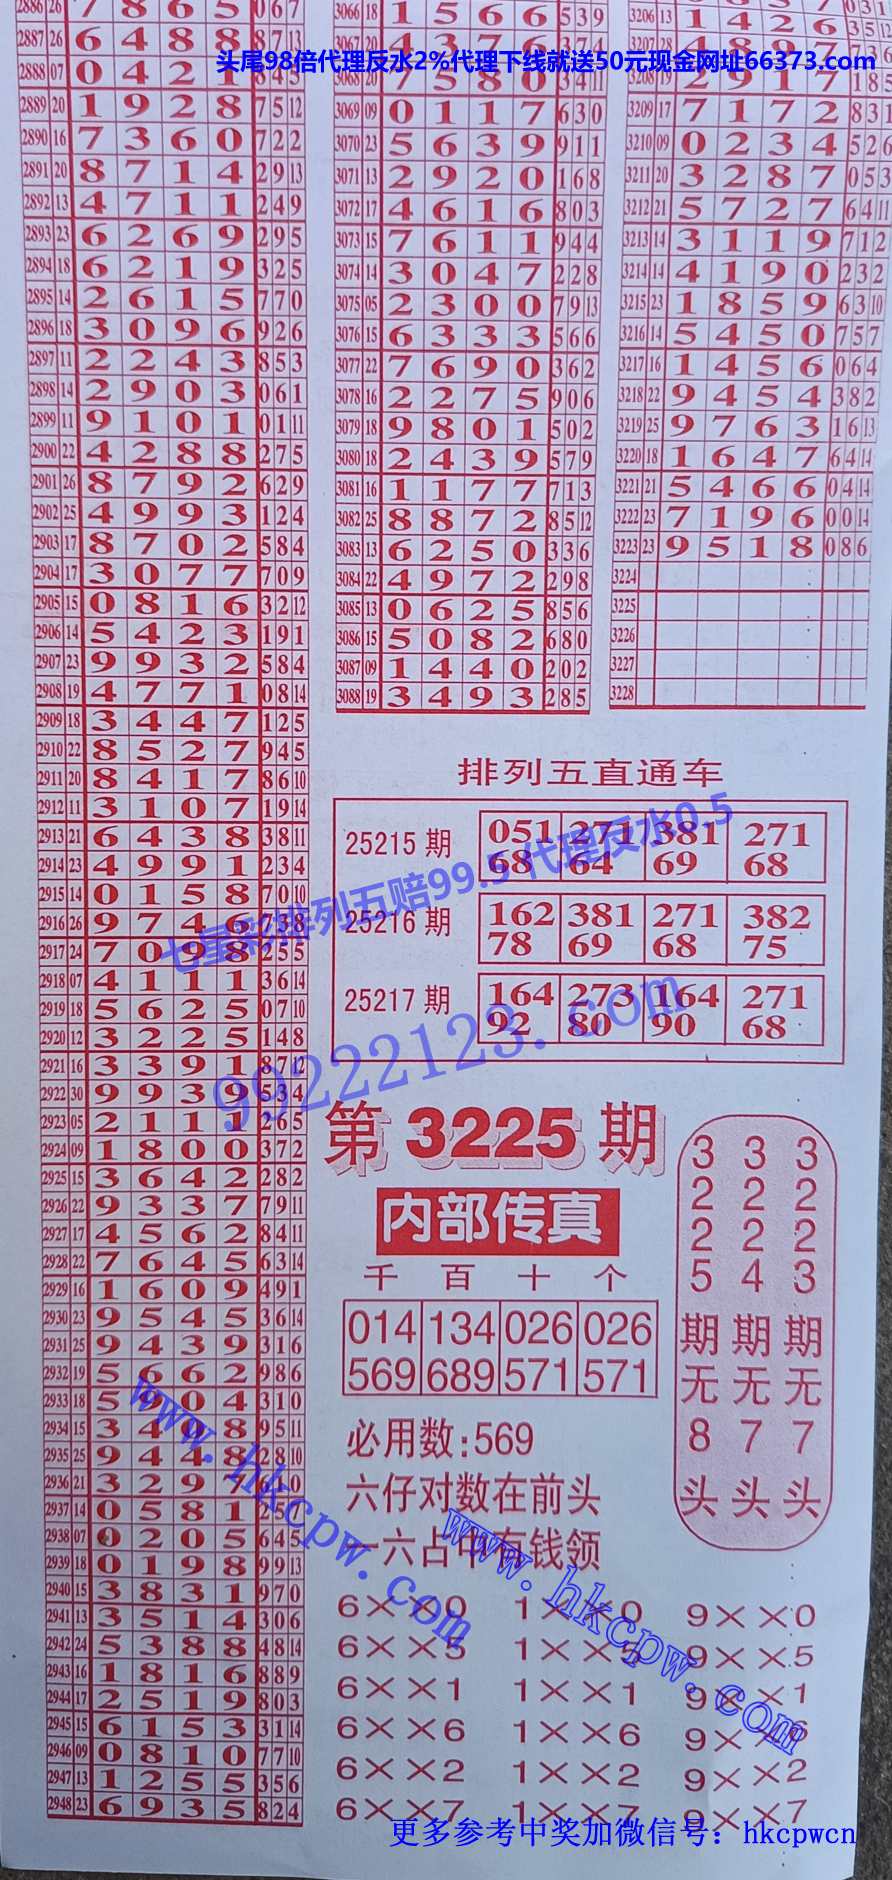 头尾98倍代理反水2%代理下线就送50元现金网址66373.com
2887 26 6 4 8 8 8 7 13
2889 20 1 9 2 8 7 5 12
2890 16 7 3 6 0 7 2 2
2891 20 8 7 1 4 2 9 13
2892 13 4 7 1 1 2 4 9
2893 23 6 2 6 9 2 9 5
2894 18 6 2 1 9 3 2 5
2895 14 2 6 1 5 7 7 0
2896 18 3 0 9 6 9 2 6
2897 11 2 2 4 3 8 5 3
2898 14 2 9 0 3 0 6 1
2899 11 9 1 0 1 0 1 11
2900 22 4 2 8 8 2 7 5
2901 26 8 7 9 2 6 2 9
2902 25 4 9 9 3 1 2 4
2903 17 8 7 0 2 5 8 4
2904 17 3 0 7 7 7 0 9
2905 15 0 8 1 6 3 2 12
2906 14 5 4 2 3 1 9 1
2907 23 9 9 3 2 5 8 4
2908 19 4 7 7 1 0 8 14
2909 18 3 4 4 7 1 2 5
2910 22 8 5 2 7 9 4 5
2911 20 8 4 1 7 8 6 10
2912 11 3 1 0 7 1 9 14
2913 21 6 4 3 8 3 8 11
2914 23 4 9 9 1 2 3 4
2915 14 0 1 5 8 7 0 10
2916 26 9 7 4 6 7 3 8
2917 24 7 0 9 8 2 5 5
2918 07 4 1 1 1 3 6 14
2919 18 5 6 2 5 0 7 10
2920 12 3 2 2 5 1 4 8
2921 16 3 3 9 1 8 7 12
2922 30 9 9 3 9 5 3 4
2923 05 2 1 1 1 2 6 5
2924 09 1 8 0 0 3 7 2
2925 15 3 6 4 2 2 8 2
2926 22 9 3 3 7 7 9 11
2927 17 4 5 6 2 8 4 11
2928 22 7 6 4 5 6 3 14
2929 16 1 6 0 9 4 9 1
2930 23 9 5 4 5 3 6 14
2931 25 9 4 3 9 3 1 6
2932 19 5 6 6 2 9 8 6
2933 18 5 9 0 4 3 1 0
2934 15 3 4 9 8 9 5 11
2935 25 9 4 4 8 2 8 10
2936 21 3 2 9 7
2937 14 0 5 8 1
2938 07 0 2 0 5 6 4 5
2939 18 0 1 9 8 9 9 13
2940 15 3 8 3 1 9 7 0
2941 13 3 5 1 4 3 0 6
2942 24 5 3 8 8 4 8 14
2943 16 1 8 1 6 8 8 9
2944 17 2 5 1 9 8 0 3
2945 15 6 1 5 3 3 1 14
2946 09 0 8 1 0 7 7 10
2947 13 1 2 5 5 3 5 6
2948 23 6 9 3 5 8 2 4
3066 18 1 5 6 6 5 3 9
3069 09 0 1 1 7 6 3 0
3070 23 5 6 3 9 9 1 1
3071 13 2 9 2 0 1 6 8
3072 17 4 6 1 6 8 0 3
3073 15 7 6 1 1 9 4 4
3074 14 3 0 4 7 2 2 8
3075 05 2 3 0 0 7 9 13
3076 15 6 3 3 3 5 6 6
3077 22 7 6 9 0 3 6 2
3078 16 2 2 7 5 9 0 6
3079 18 9 8 0 1 5 0 2
3080 18 2 4 3 9 5 7 9
3081 16 1 1 7 7 7 1 3
3082 25 8 8 7 2 8 5 12
3083 13 6 2 5 0 3 3 6
3084 22 4 9 7 2 2 9 8
3085 13 0 6 2 5 8 5 6
3086 15 5 0 8 2 6 8 0
3087 09 1 4 4 0 2 0 2
3088 19 3 4 9 3 2 8 5
3206 13 1 4 2 6 3 5 12
3209 17 7 1 7 2 8 3
3210 09 0 2 3 4 5 2 6
3211 20 3 2 8 7 0 5 3
3212 21 5 7 2 7 6 4 11
3213 14 3 1 1 9 7 1 2
3214 14 4 1 9 0 2 3 2
3215 23 1 8 5 9 6 3 10
3216 14 5 4 5 0 7 5 7
3217 16 1 4 5 6 0 6 4
3218 22 9 4 5 4 3 8 2
3219 25 9 7 6 3 1 6 13
3220 18 1 6 4 7 6 4 14
3221 21 5 4 6 6 0 4 14
3222 23 7 1 9 6 0 0 14
3223 23 9 5 1 8 0 8 6
3224
3225
3226
3227
3228
排列五直通车
25215 期 051 271 381 271
68 64 69 68
25216 期 162 381 271 382
78 69 68 75
25217 期 164 273 164 271
92 80 90 68
七星彩排列五赔99.5 代理反水0.5
99222123.com
第 3225 期
内部传真
千 百 十 个
014 134 026 026
569 689 571 571
必用数:569
六仔对数在前头
一六占中有钱领
3225期无8头
3224期无7头
3223期无7头
6××0 1××0 9××0
6××5 1××5 9××5
6××1 1××1 9××1
6××6 1××6 9××6
6××2 1××2 9××2
6××7 1××7 9××7
www.hkcpw.com
www.hkcpw.com
更多参考中奖加微信号：hkcpwcn